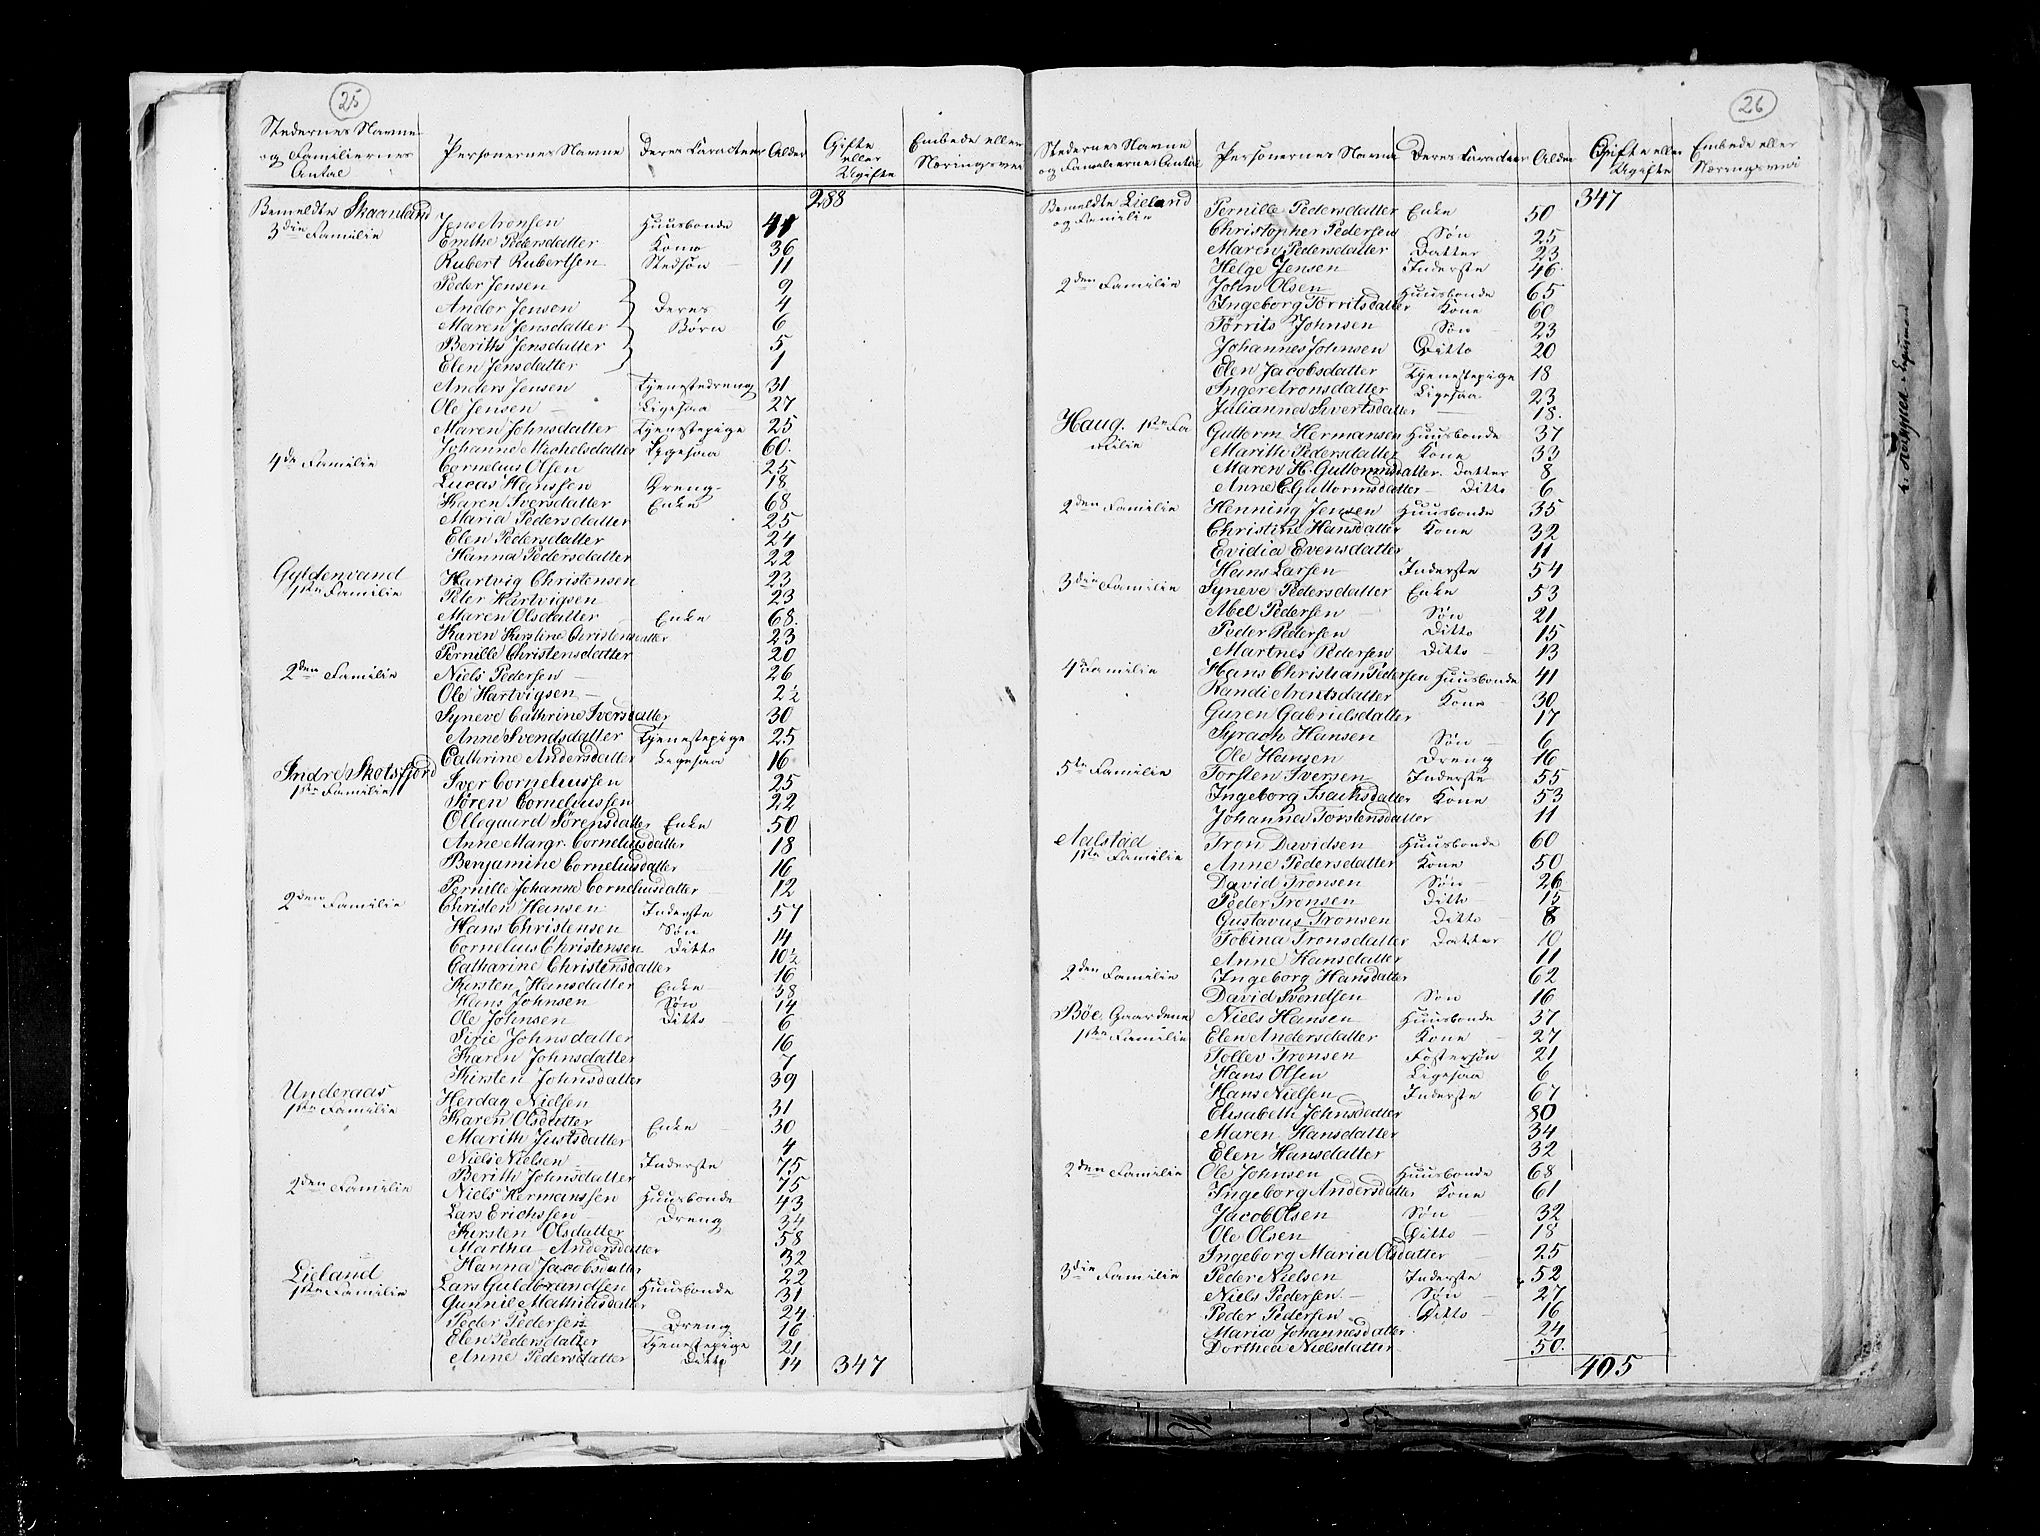 25
Stedernes Navne og Familiernes Antal | Personernes Navne | Deres Caracteer | Alder | Gifte eller Ugifte | Embede eller Næringsvei
288
Bemeldte Skaanland
3die Familie | Jens Aronsen | Huusbonde | 41
Emthe Pedersdatter | Kone | 36
Rubert Rubertsen | Stedsøn | 11
Peder Jensen | 9
Andor Jensen | Deres | 4
Maren Jensdatter | Børn | 6
Berith Jensdatter | 5
Elen Jensdatter | 1
Anders Jensen | Tjenestedreng | 31
Ole Jensen | Ligesaa | 27
Maren Johnsdatter | Tjenestepige | 25
Johanne Michelsdatter | Ligesaa | 60
4de Familie | Cornelius Olsen | 25
Lucas Hanssen | Dreng | 18
Karen Iversdatter | Enke | 68
Maria Pedersdatter | 25
Elen Pedersdatter | 24
Hanna Pedersdatter | 22
Gyldenvand | Hartvig Christensen | 23
1ste Familie | Peter Hartvigsen | 23
Maren Olsdatter | Enke | 68
Karen Kirstine Christensdatter | 23
Pernille Christensdatter | 20
2den Familie | Niels Pedersen | 26
Ole Hartvigsen | 2½
Syneve Cathrine Iversdatter | 30
Anne Svendsdatter | Tjenestepige | 25
Cathrine Andersdatter | Ligesaa | 16
Indre Skotsfjord
1ste Familie | Iver Corneliussen | 25
Søren Corneliussen | 22
Ollegaard Sørensdatter | Enke | 50
Anne Margr. Corneliusdatter | 18
Benjamine Corneliusdatter | 16
Pernille Johanne Corneliusdatter | 12
2den Familie | Christen Hansen | Inderste | 57
Hans Christensen | Søn | 14
Cornelius Christensen | Ditto | 10½
Catharine Christensdatter | 16
Kirsten Hansdatter | Enke | 58
Hans Johnsen | Søn | 14
Ole Johnsen | Ditto | 6
Sirie Johnsdatter | 16
Karen Johnsdatter | 7
Kirsten Johnsdatter | 39
Underaas
1ste Familie | Herdag Nielsen | 31
Karen Olsdatter | 30
Marith Justsdatter | Enke | 4
Niels Nielsen | Inderste | 75
Berith Johnsdatter | 75
2den Familie | Niels Hermanssen | Huusbonde | 43
Lars Erichssen | Dreng | 34
Kirsten Olsdatter | 58
Martha Andersdatter | 32
Hanna Jacobsdatter | 22
Lieland
1ste Familie | Lars Guldbrandsen | Huusbonde | 31
Gunnil Mathiisdatter | 24
Peder Pedersen | Dreng | 16
Elen Pedersdatter | Tjenestepige | 21
Anne Pedersdatter | Ditto | 14 | 347
26
Stedernes Navne og Familiernes Antal | Personernes Navne | Deres Caracteer | Alder | Gifte eller Ugifte | Embede eller Næringsvei
347
Bemeldte Lieland og Familie | Pernille Pedersdatter | Enke | 50
Christopher Pedersen | Søn | 25
Maren Pedersdatter | Datter | 23
Helge Jensen | Inderste | 46
2den Familie | John Olsen | Huusbonde | 65
Ingeborg Torritsdatter | Kone | 60
Torrits Johnsen | Søn | 23
Johannes Johnsen | Ditto | 20
Elen Jacobsdatter | Tjenestepige | 18
Inger Aronsdatter | Ligesaa | 23
Julianna Sivertsdatter | 18
Haug. 1ste Familie | Guttorm Hermansen | Huusbonde | 37
Marith Pedersdatter | Kone | 33
Maren H. Guttormsdatter | Datter | 8
Anne C Guttormsdatter | Ditto | 6
2den Familie | Henning Jensen | Huusbonde | 35
Christine Hansdatter | Kone | 32
Evidia Evensdatter | 11
Hans Larsen | Inderste | 54
3die Familie | Syneve Pedersdatter | Enke | 53
Abel Pedersen | Søn | 21
Peder Pedersen | Ditto | 15
Martnes Pedersen | Ditto | 13
4de Familie | Hans Christian Pedersen | Huusbonde | 41
Randi Arentsdatter | Kone | 30
Guren Gabrielsdatter | 17
Syrach Hansen | Søn | 6
Ole Hansen | Dreng | 16
5te Familie | Torsten Iversen | Inderste | 55
Ingeborg Isachsdatter | Kone | 53
Johanna Torstensdatter | 11
Aalstad
1ste Familie | Tron Davidsen | Huusbonde | 60
Anne Pedersdatter | Kone | 50
David Tronsen | Søn | 26
Peder Tronsen | Ditto | 15
Gustavus Tronsen | Ditto | 8
Tobina Tronsdatter | Datter | 10
Anne Hansdatter | 11
2den Familie | Ingeborg Hansdatter | 62
David Svendsen | Søn | 16
Böe Gaardene | Niels Hansen | Huusbonde | 37
1ste Familie | Elen Andersdatter | Kone | 27
Tollev Tronsen | Fostersøn | 21
Hans Olsen | Ligesaa | 6
Hans Nielsen | Inderste | 67
Elisabeth Johnsdatter | 80
Maren Hansdatter | 34
Elen Hansdatter | 32
2den Familie | Ole Johnsen | Huusbonde | 68
Ingeborg Andersdatter | Kone | 61
Jacob Olsen | Søn | 32
Ole Olsen | Ditto | 18
Ingeborg Maria Olsdatter | 25
3die Familie | Peder Nielsen | Inderste | 52
Niels Pedersen | Søn | 27
Peder Pedersen | Ditto | 16
Maria Johannesdatter | 24
Dorthea Nielsdatter | 50
405